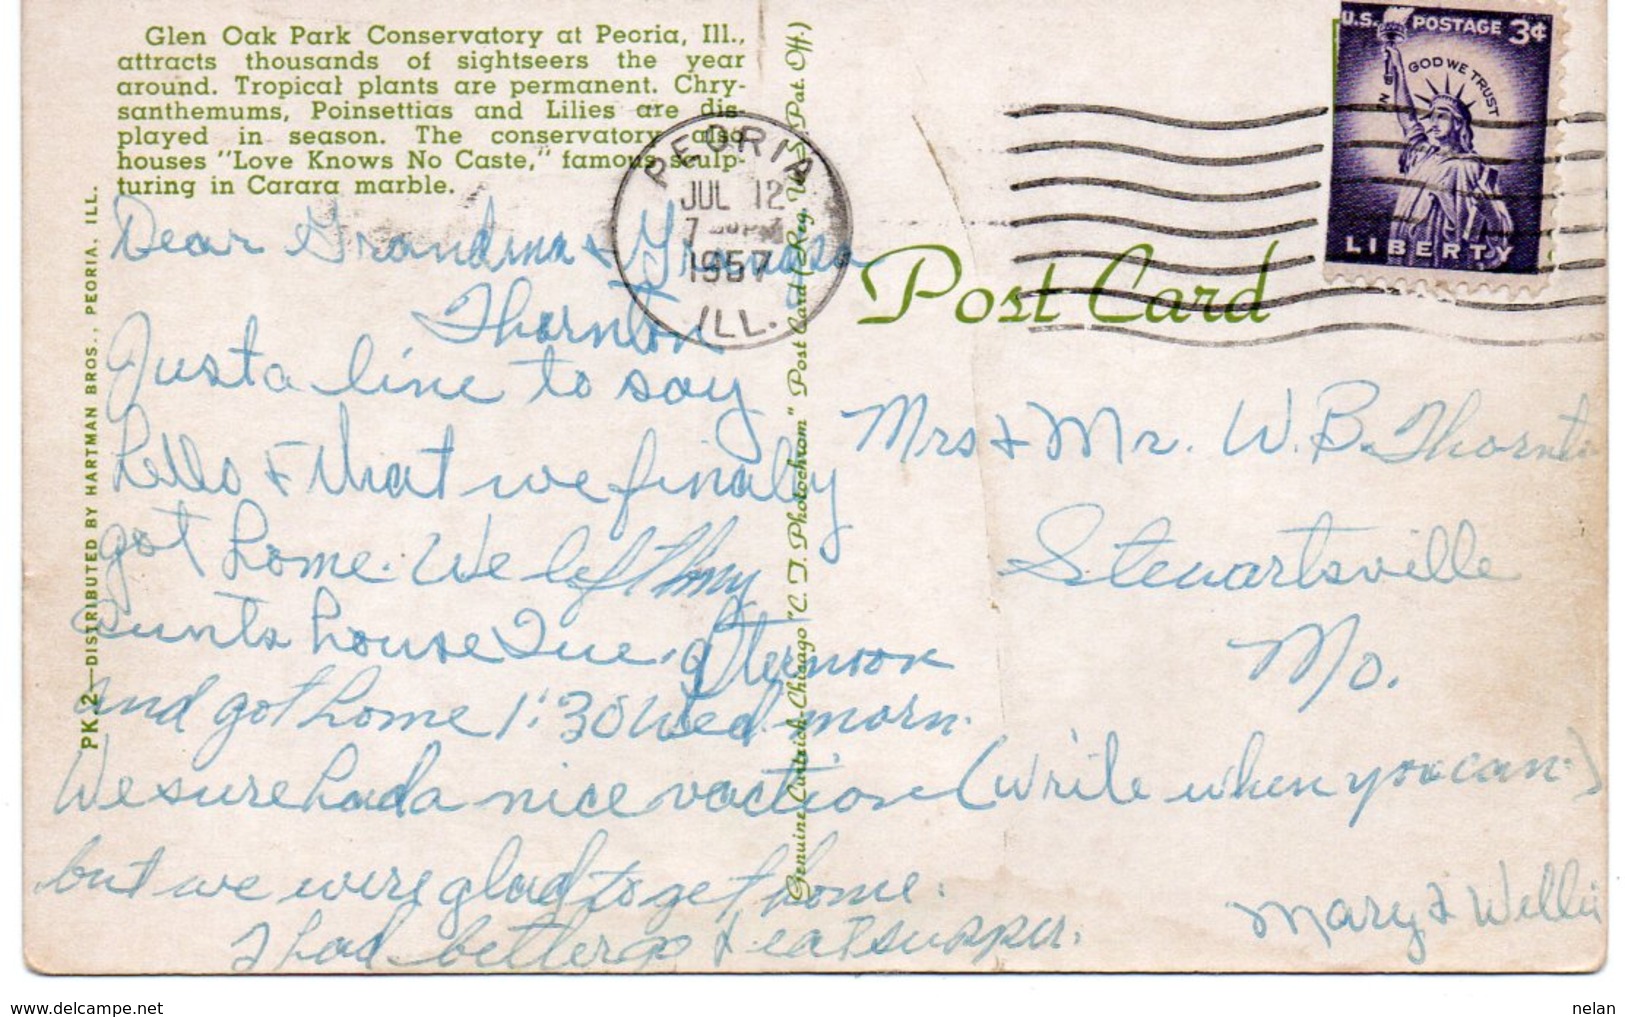 Glen Oak Park Conservatory at Peoria, Ill.,
attracts thousands of sightseers the year
around. Tropical plants are permanent. Chry-
santhemums, Poinsettias and Lilies are dis-
played in season. The conservatory also
houses "Love Knows No Caste," famous sculp-
turing in Carara marble.
PK.2—DISTRIBUTED BY HARTMAN BROS., PEORIA, ILL.
Dear Grandma & Grandpa
Thornton
Just a line to say
hello & that we finally
got home. We left my
aunts house Tue. afternoon
and got home 1:30 Wed. morn.
We sure had a nice vaction
but we were glad to get home.
I had better go & eat supper.
Genuine Curteich-Chicago "C. T. Photochrom" Post Card (Reg. U. S. Pat. Off.)
PEORIA
JUL 12
7 PM
1957
ILL.
Post Card
U.S. POSTAGE 3¢
IN GOD WE TRUST
LIBERTY
Mrs & Mr. W. B. Thornton
Stewartsville
Mo.
(Write when you can.)
Mary & Willie
delcampe.net
nelan